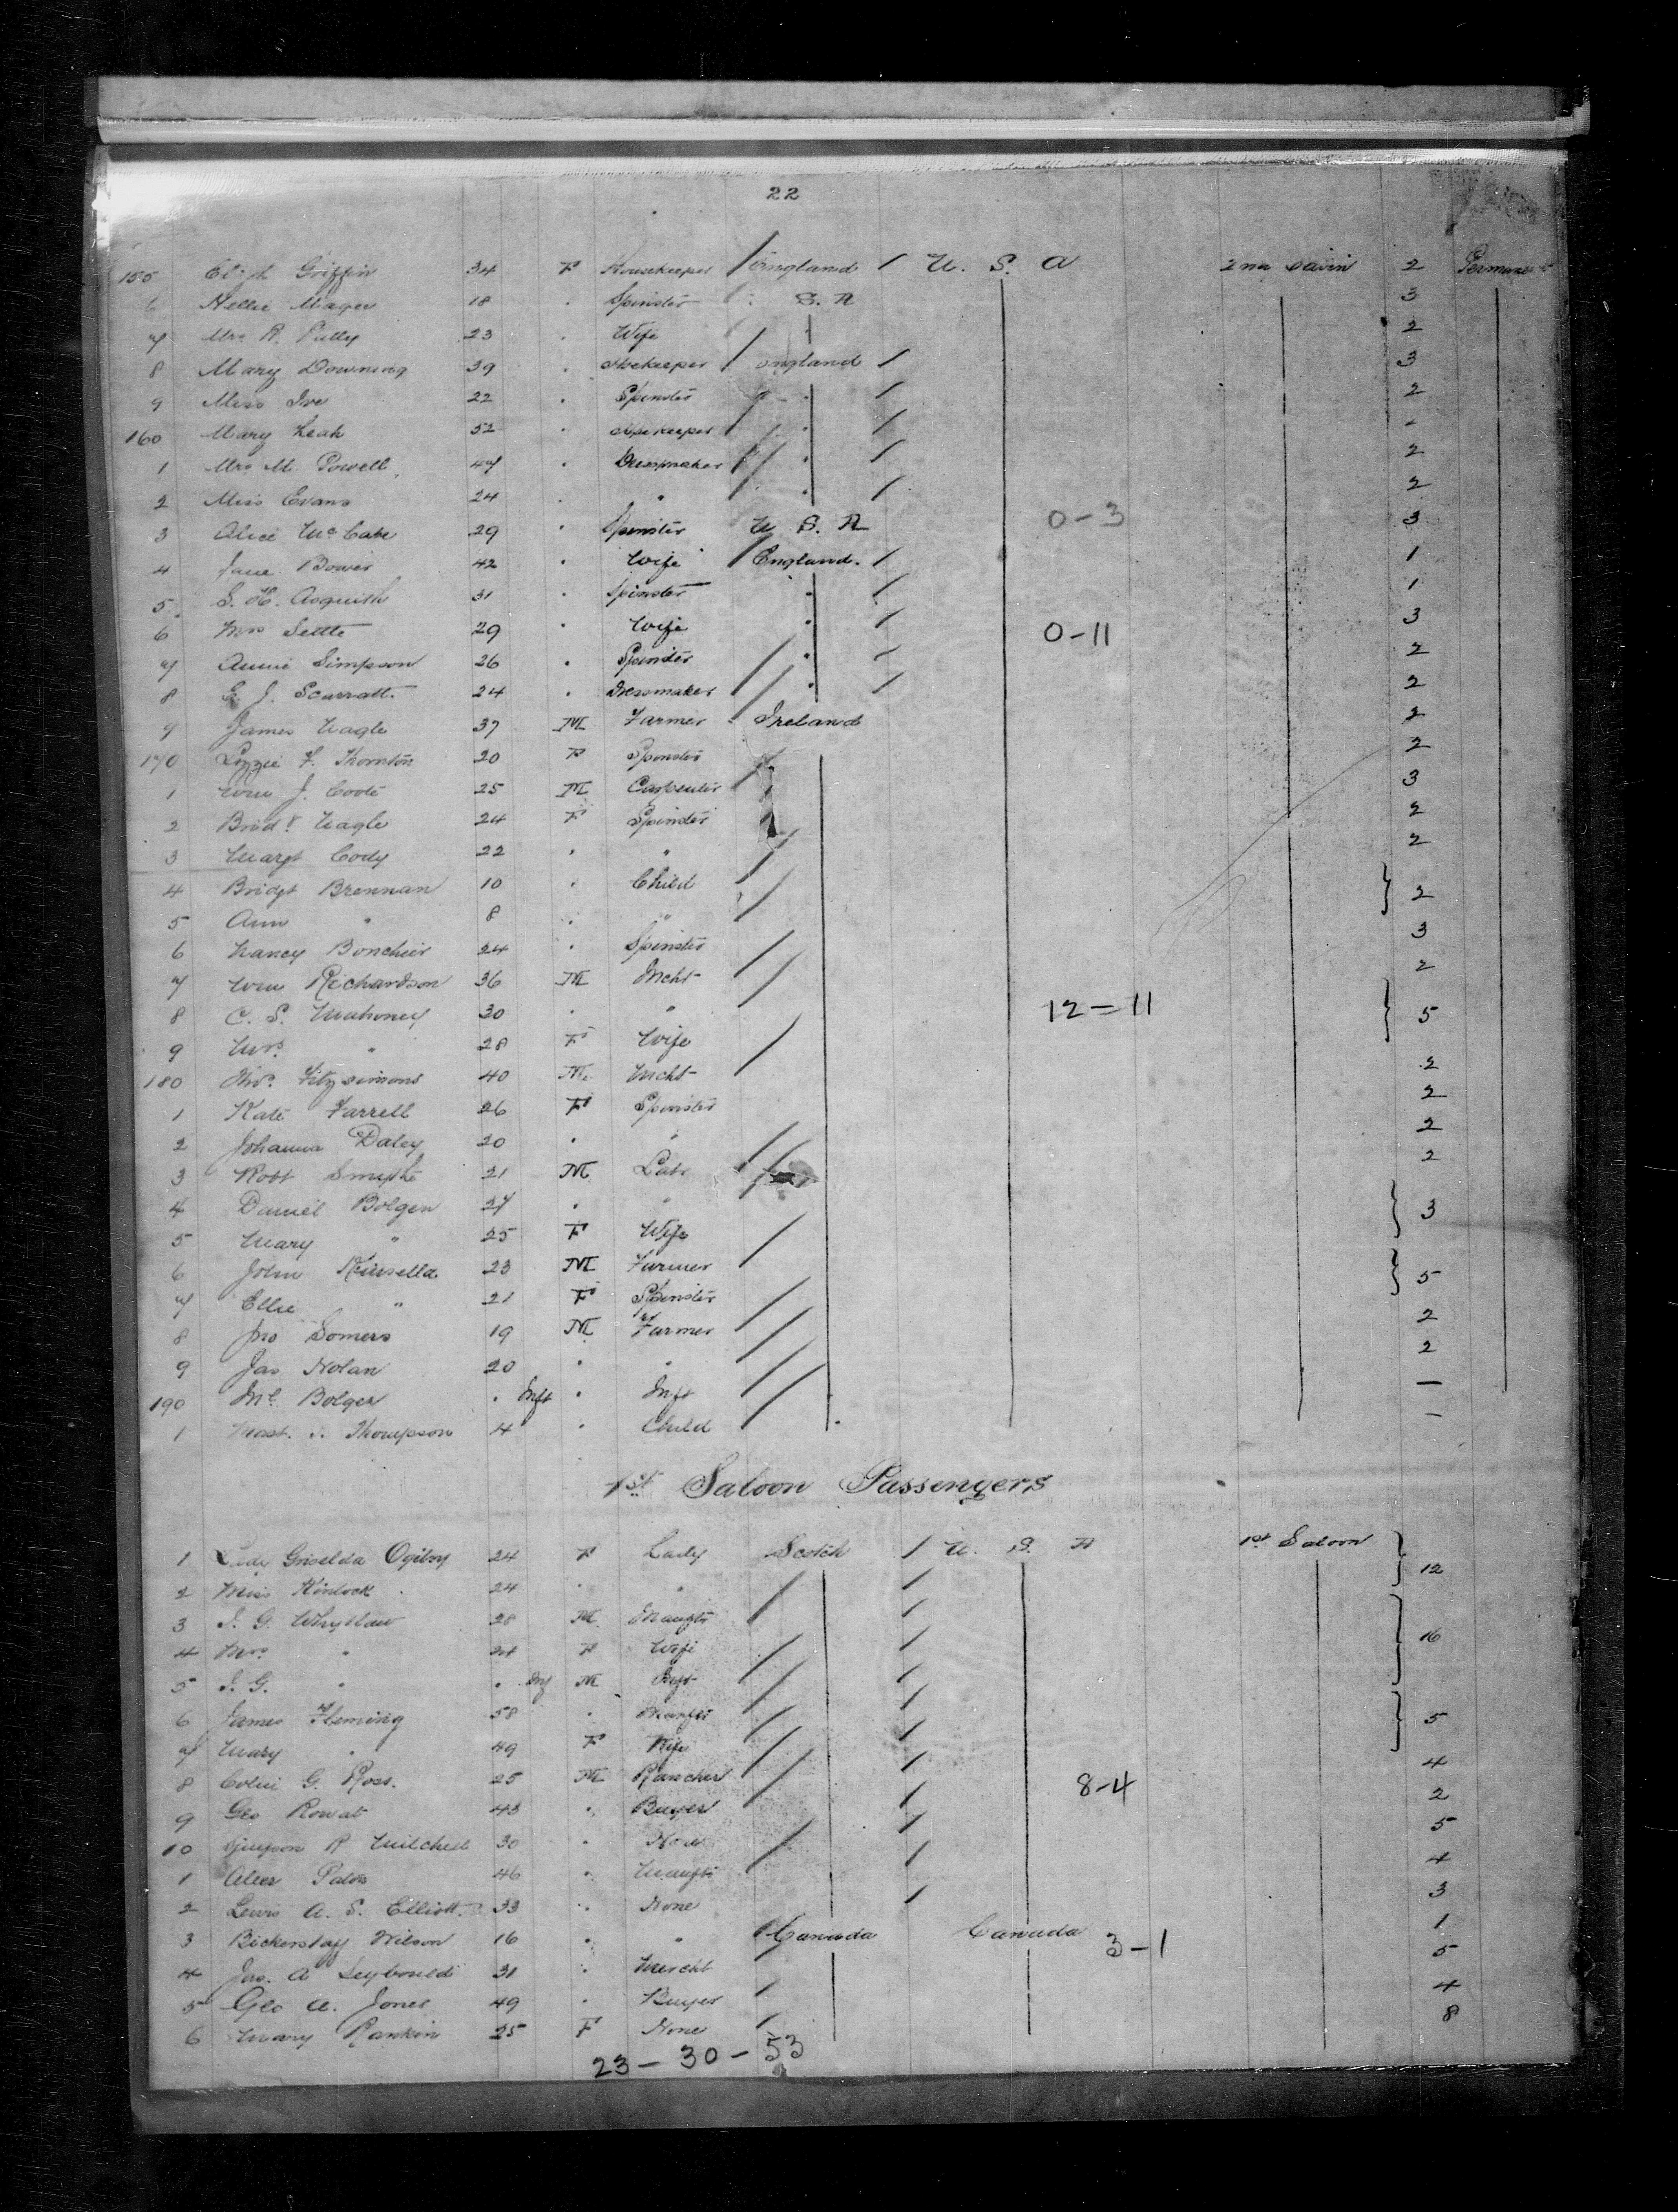 22
155 Elizh Griffin 34 F Housekeeper England U. S. A 2nd Cabin 2
6 Nellie Mager 18 " Spinster U. S. A 3
7 Mrs R. Pully 23 " Wife " 2
8 Mary Downing 39 " Hsekeeper England 3
9 Miss 22 " Spinster " 2
160 Mary Leah 52 " Hsekeeper "
1 Mrs M. Powell 47 " Dressmaker " 2
2 Miss Evans 24 " " " 2
3 Alice McCabe 29 " Spinster U. S. A 0-3 3
4 Jane Bower 42 " Wife England 1
5 S. H. Asquith 31 " Spinster " 1
6 Mrs Settle 29 " Wife " 0-11 3
7 Annie Simpson 26 " Spinster " 2
8 E. J. Scarratt 24 " Dressmaker " 2
9 James Nagle 37 M Farmer Ireland 2
170 Lizzie F. Thornton 20 F Spinster 2
1 Wm J. Coote 25 M Carpenter 3
2 Bridt Nagle 24 F Spinster 2
3 Margt Cody 22 " " 2
4 Bridgt Brennan 10 " Child 2
5 Ann " 8 " "
6 Nancy Bonchier 24 " Spinster 3
7 Wm Richardson 36 M Mcht 2
8 C. S. Mahoney 30 " " 12-11 5
9 Mrs " 28 F Wife
180 Thos. Fitzsimons 40 M Mcht 2
1 Kate Farrell 26 F Spinster 2
2 Johanna Daley 20 " " 2
3 Robt Smythe 21 M Labr 2
4 Daniel Bolger 27 " " 3
5 Mary " 25 F Wife
6 John Kinsella 23 M Farmer 5
7 Ellie " 21 F Spinster
8 Jno Somers 19 M Farmer 2
9 Jas Nolan 20 " " 2
190 Ml Bolger " Inft " Inft —
1 Mast. J. Thompson 4 " Child —
1st Saloon Passengers
1 Lady Griselda Ogilvy 24 F Lady Scotch U. S. A 1st Saloon 12
2 Miss Kinlock 24 " "
3 J. G. Whytlaw 28 M Manftr 16
4 Mrs " 24 F Wife
5 J. G. " " Inf M Inft
6 James Fleming 58 " Manftr 5
7 Mary " 49 F Wife
8 Colin G. Ross. 25 M Rancher 8-4 4
9 Geo Rowat 43 " Buyer 2
10 R Mitchell 30 " None 5
1 Alexr 46 " Manftr 4
2 Lewis A. S. Elliott 33 " None 3
3 Bickerstaff Wilson 16 " " Canada Canada 3-1 1
4 Jno. A 31 " Mercht 5
5 Geo A. Jones 49 " Buyer 4
6 Mary Rankin 25 F None 8
23-30-53